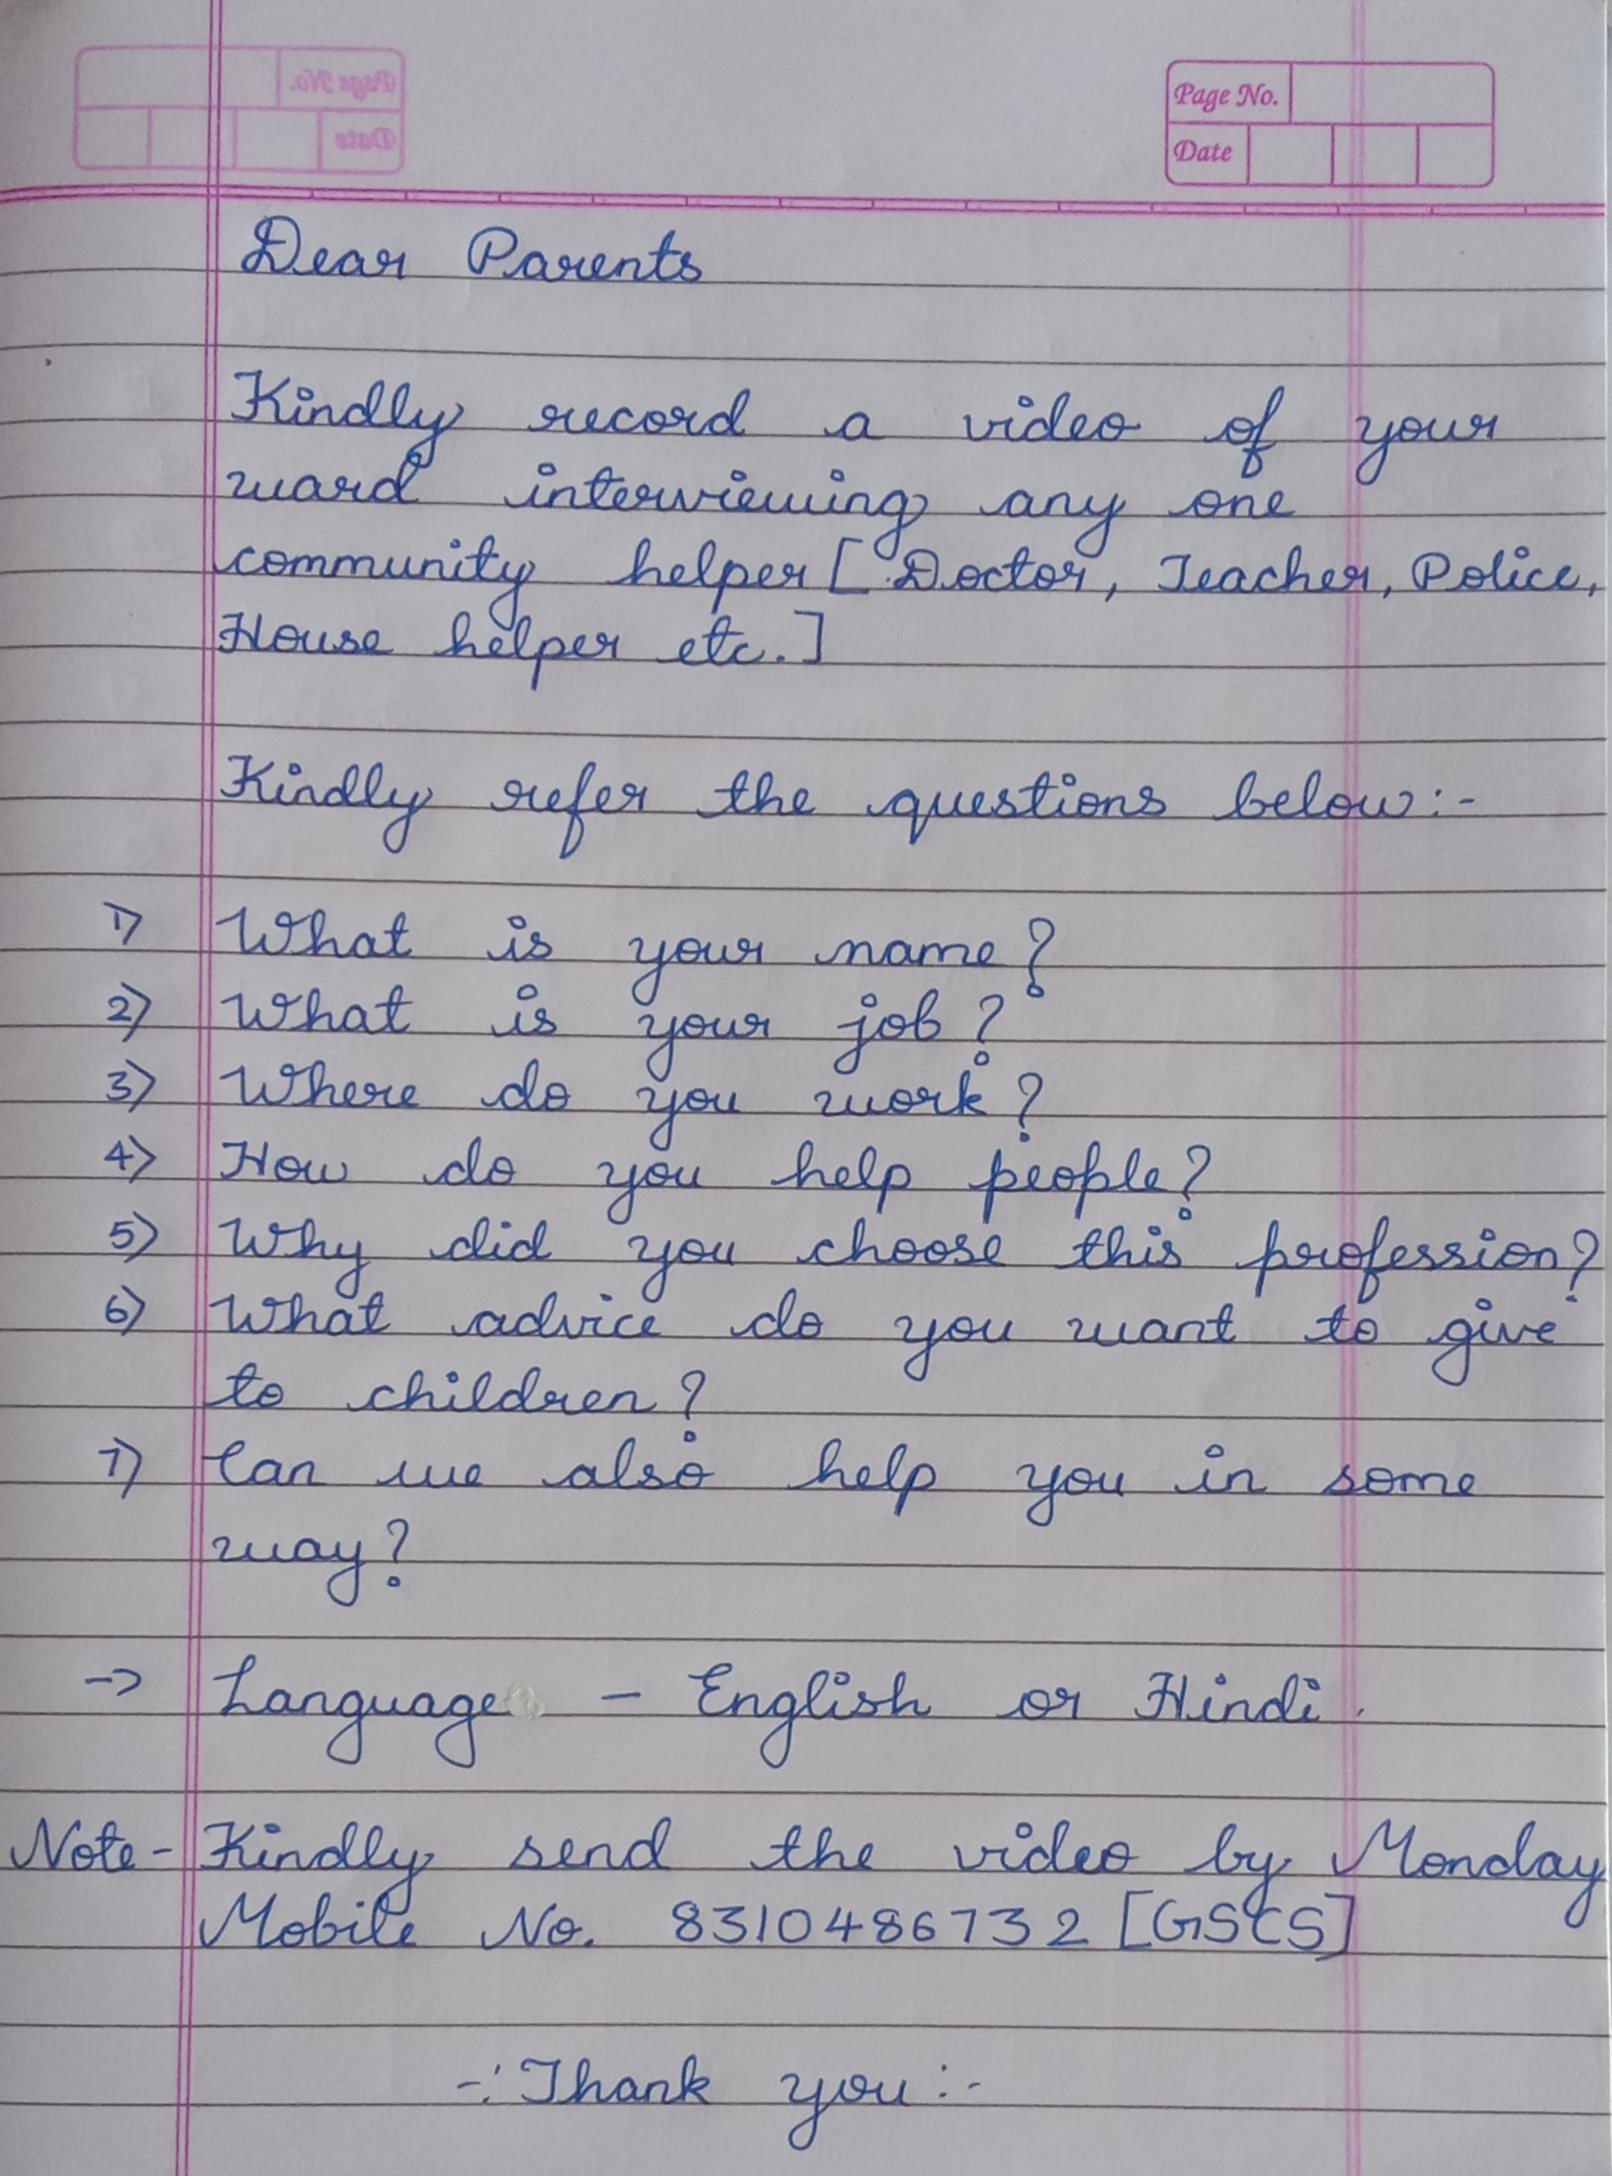 Page No.
Date
Dear Parents
Kindly record a video of your
ward interviewing any one
community helper [Doctor, Teacher, Police,
House helper etc.]
Kindly refer the questions below:-
1) What is your name?
2) What is your job?
3) Where do you work?
4) How do you help people?
5) Why did you choose this profession?
6) What advice do you want to give
to children?
7) Can we also help you in some
way?
-> Language - English or Hindi.
Note - Kindly send the video by Monday
Mobile No. 8310486732 [GSCS]
-: Thank you :-